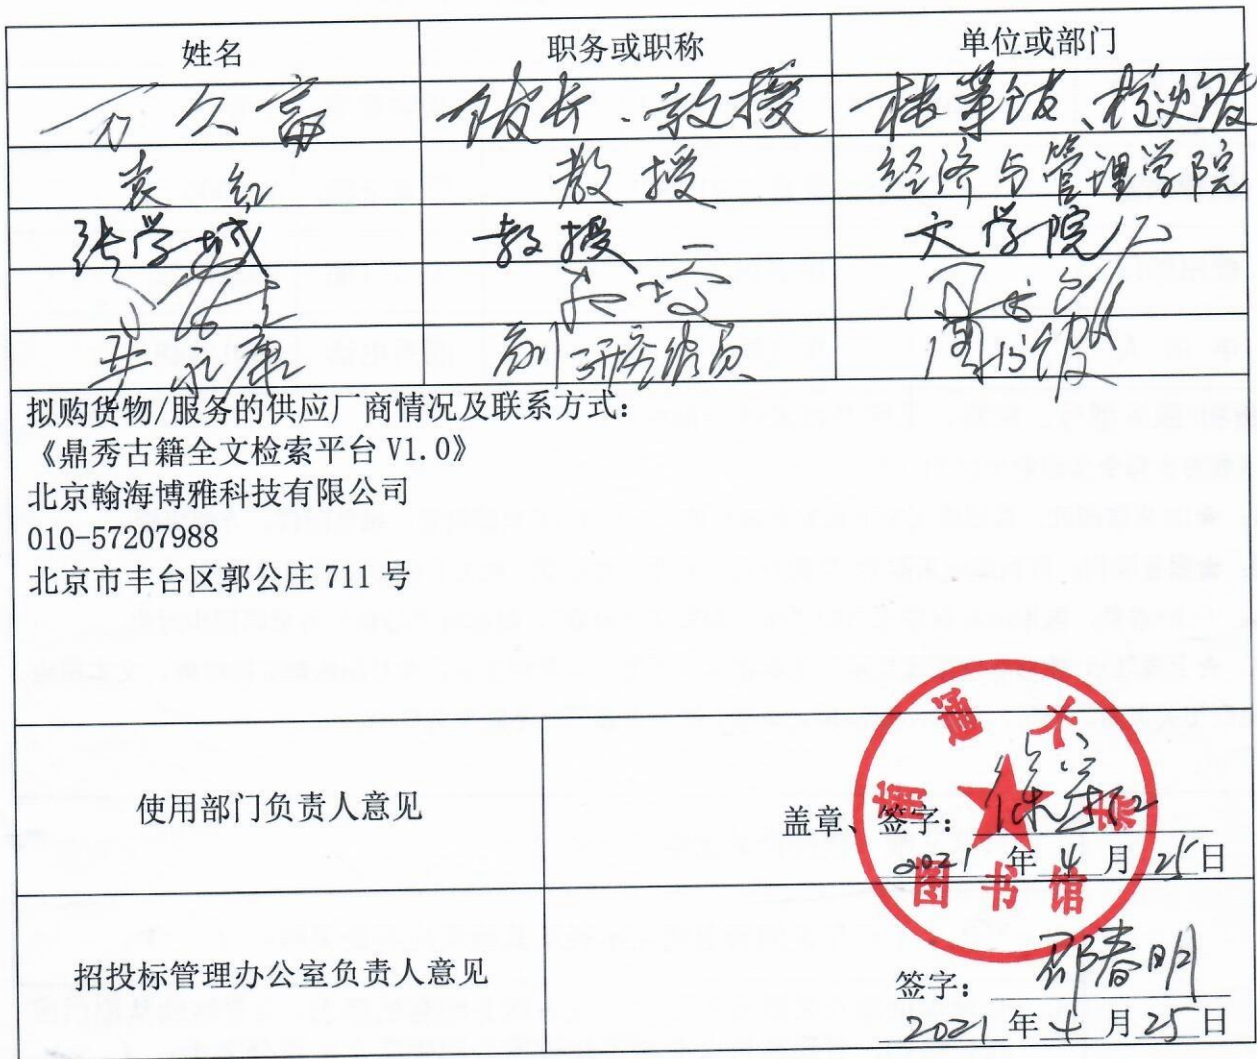 姓名 职务或职称 单位或部门
万久富 馆长、教授 档案馆、校史馆
袁红 教授 经济与管理学院
张学城 教授 文学院
图书馆
永康 副研究馆员 图书馆
拟购货物/服务的供应厂商情况及联系方式：
《鼎秀古籍全文检索平台 V1.0》
北京翰海博雅科技有限公司
010-57207988
北京市丰台区郭公庄 711 号
南通大学
图书馆
使用部门负责人意见
盖章、签字：
2021 年 4 月 25 日
招投标管理办公室负责人意见
签字：邵春明
2021 年 4 月 25 日